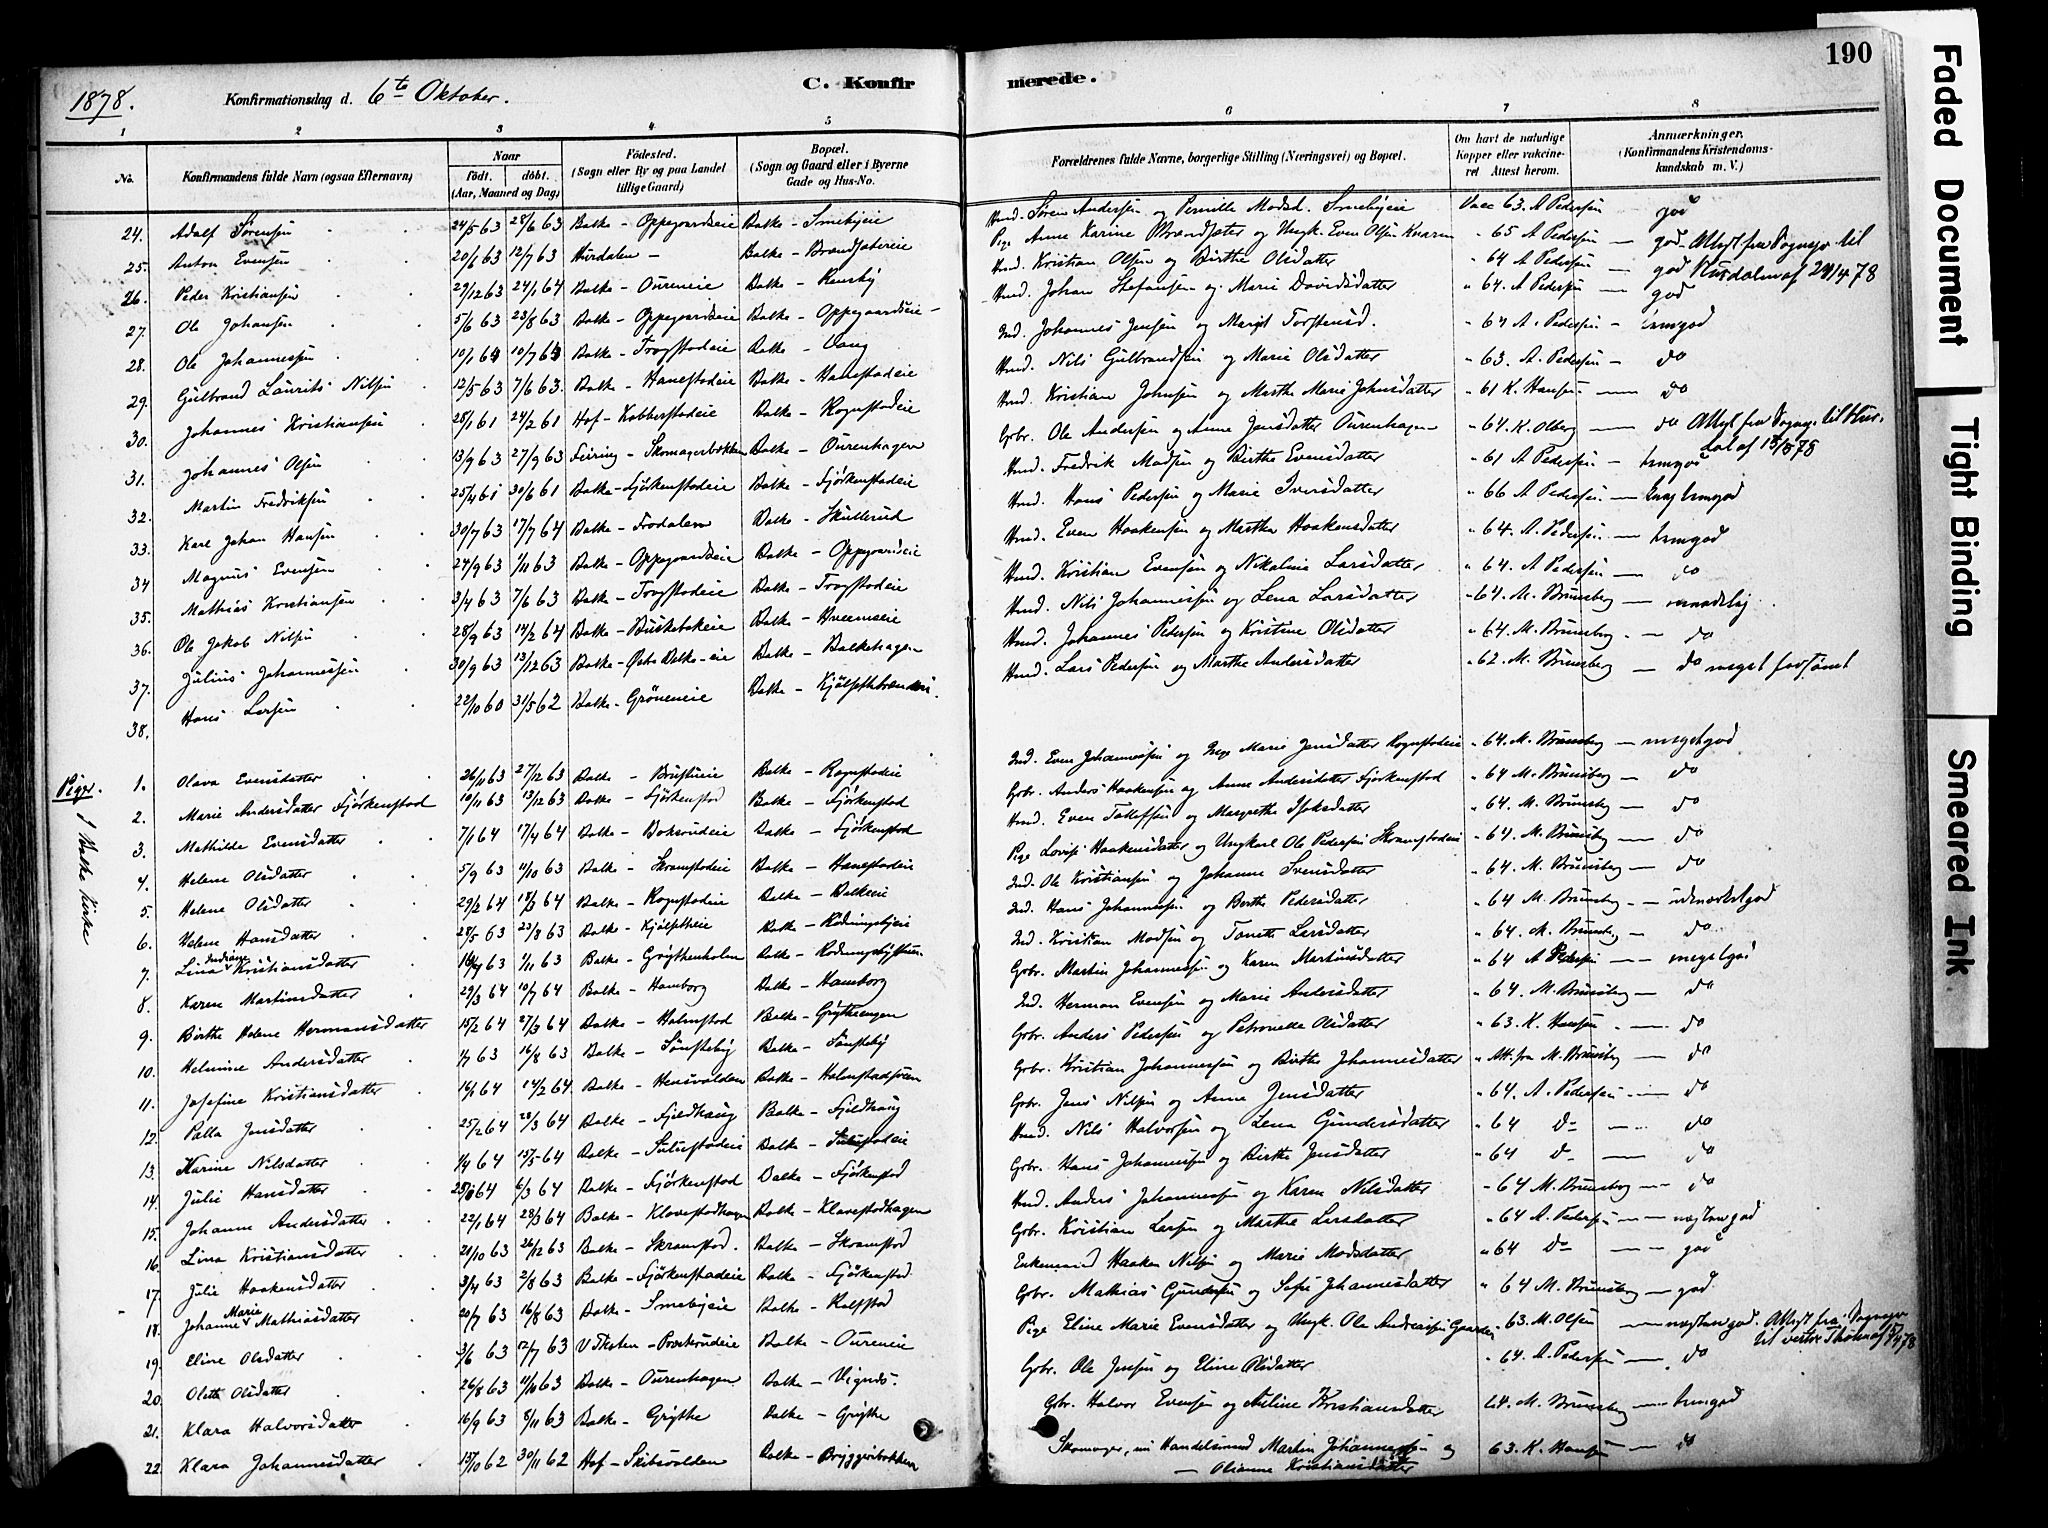 190
1878. Konfirmationsdag d. 6te Oktober. C. Konfirmerede.
1 2 3 4 5 6 7 8
No. Konfirmandens fulde Navn (ogsaa Efternavn) Naar født. døbt. (Aar, Maaned og Dag) Fødested. (Sogn eller By og paa Landet tillige Gaard) Bopæl. (Sogn og Gaard eller i Byerne Gade og Hus-No. Forældrenes fulde Navne, borgerlige Stilling (Næringsvei) og Bopæl. Om havt de naturlige Kopper eller vakcineret Attest herom. Anmærkninger. (Konfirmandens Kristendomskundskab m. V.)
24. Adolf Sørensen 24/5 63 28/6 63 Balke - Oppegaardseie Balke - Smebyeie Hmd. Søren Andersen og Pernille Madsd. Smebyeie Vacc 63. A Pedersen - god
25. Anton Evensen 20/1 63 12/7 63 Hurdalen - Balke - Brandsætereie Pige Anne Karine Brandsæter og Ungk. Even Olsen " 65 A Pedersen - god. Attest fra Sognepr. til Hurdalen af 24/4 78
26. Peder Kristiansen 29/12 63 24/1 64 Balke - Oureneie Balke - Hmd. Kristian Olsen og Birthe Olsdatter " 64 A Pedersen - god
27. Ole Johansen 5/6 63 23/8 63 Balke - Oppegaardseie Balke - Oppegaardseie Hmd. Johan Stefansen og Marie Davidsdatter " 64. A Pedersen - god
28. Ole Johannessen 10/1 64 10/7 64 Balke - Trogstadeie Balke - Vang Ind. Johannes Jensen og Margit Torstensd. " 64 A. Pedersen - temgod
29. Gulbrand Laurits Nilsen 12/5 63 7/6 63. Balke - Hanestadeie Balke - Hanestadeie Hmd. Nils Gulbrandsen og Marie Olsdatter " 63. A. Pedersen - do
30. Johannes Kristiansen 28/1 61 24/2 61 Hof - Kobberstadeie Balke - Rognstadeie Hmd. Kristian Johnsen og Marthe Marie Johnsdatter " 61 K. Hansen - do
31. Johannes Olsen 13/9 63 27/9 63 Feiring - Skomagerbakken Balke - Ourenhagen Grbr. Ole Andersen og Anne Jensdatter Ourenhagen " 64. K. Olberg - do Attest fra Sognepr. til Hurdal af 18/5 78
32. Martin Fredriksen 25/4 61 30/6 61 Balke - Fjørkenstadeie Balke - Fjørkenstadeie Hmd. Fredrik Madsen og Birthe Evensdatter " 61 A Pedersen - temgod
33. Karl Johan Hansen 30/7 63 17/7 64 Balke - Frodalen Balke - Skullerud Hmd. Hans Pedersen og Marie Iversdatter " 66 A Pedersen - temgod
34 Magnus Evensen 24/9 63 1/11 63 Balke - Oppegaardseie Balke - Oppgaardseie Hmd. Even Haakensen og Marthe Haakensdatter " 64. A. Pedersen - temgod
35. Mathias Kristiansen 3/4 63 7/6 63 Balke - Trogstadeie Balke - Trogstadeie Hmd. Kristian Evensen og Nikoline Larsdatter " 64. A Pedersen - do
36. Ole Jakob Nilsen 28/9 63 14/2 64 Balke - Buskebakeie Balke - Hveemseie Hmd. Nils Johannessen og Lena Larsdatter " 64. M. Brunsberg - maadelig
37. Julius Johannessen 30/9 63 13/12 63 Balke - Balke-eie Balke - Balkehagen Hmd. Johannes Pedersen og Kristine Olsdatter " 64. M. Brunsberg - do
38. Hans Larsen 22/10 60 31/5 62 Balke - Grøneneie Balke - Kjølsethbrænderi. Hmd. Lars Pedersen og Marthe Andersdatter " 62. M. Brunsberg - do meget forsømt
Piger. I Balke Kirke
1. Olava Evensdatter 26/11 63 27/12 63 Balke - Balke - Rognstadeie Ind. Even Johannessen og Inge Marie Jensdatter Rognstadeie " 64. M. Brunsberg - megetgod
2. Marie Andersdatter Fjørkenstad 19/11 63 13/12 63 Balke - Fjørkenstad Balke - Fjørkenstad Grbr. Anders Haakensen og Anne Andersdatter Fjørkenstad " 64 M. Brunsberg - do
3. Mathilde Evensdatter 7/1 64 17/4 64 Balke - Boksrudeie Balke - Fjørkenstad Hmd. Even Tollefsen og Margrethe Isaksdatter " 64. M. Brunsberg - do
4. Helene Olsdatter 5/9 63 11/10 63 Balke - Skramstadeie Balke - Hanestadeie Pige Lovise Haakensdatter og Ungkarl Ole Pedersen Skramstadeie " 64. M. Brunsberg - do
5. Helene Olsdatter 29/2 64 18/3 64 Balke - Rognstadeie Balke - Balkeeie Ind. Ole Kristiansen og Johanne Svensdatter " 64. M. Brunsberg - do
6. Helene Hansdatter 28/5 63 23/8 63 Balke - Kjølsetheie Balke - Rødningsbyeie Ind. Hans Johannessen og Berthe Pedersdatter " 64 M. Brunsberg - udmærketgod
7. Lina Indiane Kristiansdatter 16/9 63 1/11 63 Balke - Grythenholm Balke - Ind. Kristian Madsen og Tonette Larsdatter " 64. M. Brunsberg - do
8. Karen Martinsdatter 29/3 64 10/7 64 Balke - Hamborg Balke - Hamborg Grbr. Martin Johannessen og Karen Martinsdatter " 64 A Pedersen - megetgod
9. Birthe Helene Hermansdatter 15/2 64 27/3 64 Balke - Holmstad Balke - Grytheengen Ind. Herman Evensen og Marie Andersdatter " 64. M. Brunsberg - do
10. Helmine Andersdatter 1/7 63 16/8 63 Balke - Sønsteby Balke - Sønsteby Grbr. Anders Pedersen og Petronelle Olsdatter " 63. K. Hansen - do
11. Josefine Kristiansdatter 16/1 64 14/2 64 Balke - Hensvolden Balke - Grbr. Kristian Johannessen og Birthe Johannesdatter " Att. fra M. Brunsberg - do
12. Palla Jensdatter 25/2 64 28/3 64 Balke - Fjeldhaug Balke - Fjeldhaug Grbr. Jens Nilsen og Anne Jensdatter " 64. A. Pedersen - do
13. Karine Nilsdatter 1/4 64 15/5 64 Balke - Sulustadeie Balke - Sulustadeie Hmd. Nils Halvorsen og Lena Gundersdatter " 64 do - do
14. Julie Hansdatter 25/1 64 6/3 64 Balke - Fjørkenstad Balke - Fjørkenstad Grbr. Hans Johannessen og Birthe Jensdatter " 64 do - do
15. Johanne Andersdatter 22/1 64 28/3 64 Balke - Klavestadhagen Balke - Klavestadhagen Hmd. Anders Johannessen og Karen Nilsdatter " 64 M. Brunsberg - do
16. Lina Kristiansdatter 21/10 63 26/12 63 Balke - Skramstad. Balke - Skramstad Grbr. Kristian Larsen og Marthe Larsdatter " 64 A. Pedersen - næstengod
17. Julie Haakensdatter 3/4 63 2/8 63 Balke - Fjørkenstadeie Balke - Fjørkenstad Enkemand Haaken Nilsen og Marie Madsdatter " 64 do - god
18. Johanne Marie Mathiasdatter 20/7 63 16/8 63 Balke - Smebyeie Balke - Rolfstad Grbr. Mathias Gundersen og Sofie Johannesdatter " 64 M. Brunsberg - god
19. Eline Olsdatter 3/6 63 12/7 63 V. Thoten - Præsterudeie Balke - Oureneie Pige Eline Marie Evensdatter og Ungk. Ole Andreassen Gaarder 63. M. Olsen - næstengod. Attest fra Sognepr. til vestre Thoten af 15/4 78
20. Oleth Olsdatter 26/8 63 11/10 63 Balke - Ourenhagen Balke - Vignds. Grbr. Ole Jensen og Eline Olsdatter " 64. A. Pedersen - do
21. Klara Halvorsdatter 16/9 63 8/11 63 Balke - Grythe Balke - Grythe Grbr. Halvor Evensen og Auline Kristiansdatter 64. M. Brunsberg - temgod
22 Klara Johannesdatter 15/10 62 30/11 62 Hof - Skibsvolden Balke - Bryggeribakken Skomager, nu Handelsmand Martin Johannessen og 63. K. Hansen - do
- Olianne Kristiansdatter
Faded Document
Tight Binding
Smeared Ink